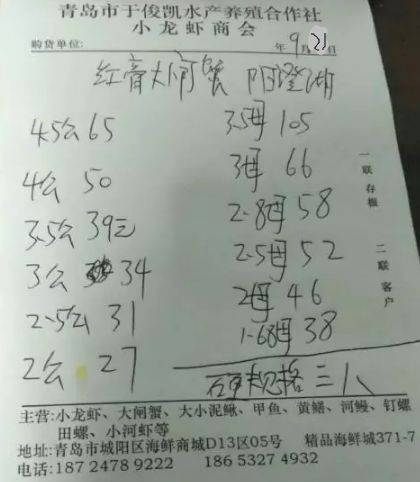 青岛市于俊凯水产养殖合作社
小龙虾商会
购货单位: 年 9月21日
红膏大闸蟹 阳澄湖
4.5公 65
4公 50
3.5公 39元
3公 34
2.5公 31
2公 27
3.5母 105
3母 66
2.8母 58
2.5母 52
2母 46
1.68母 38
规格 三八
一联存根
二联客户
主营:小龙虾、大闸蟹、大小泥鳅、甲鱼、黄鳝、河鳗、钉螺
田螺、小河虾等
地址:青岛市城阳区海鲜商城D13区05号 精品海鲜城371-7
电话:187 2478 9222 186 5327 4932